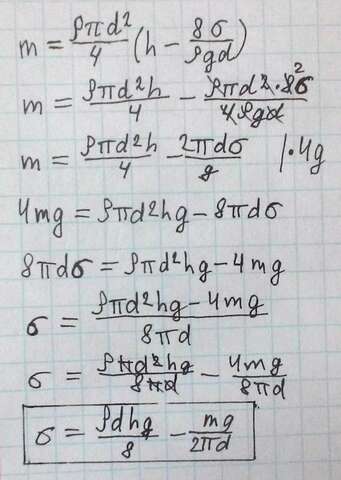 m = ρπd²/4 (h − 8σ/ρgd)
m = ρπd²h/4 − ρπd²·8σ/4ρgd 2
m = ρπd²h/4 − 2πdσ/g |·4g
4mg = ρπd²hg − 8πdσ
8πdσ = ρπd²hg − 4mg
σ = ρπd²hg − 4mg/8πd
σ = ρπd²hg/8πd − 4mg/8πd
σ = ρdhg/8 − mg/2πd